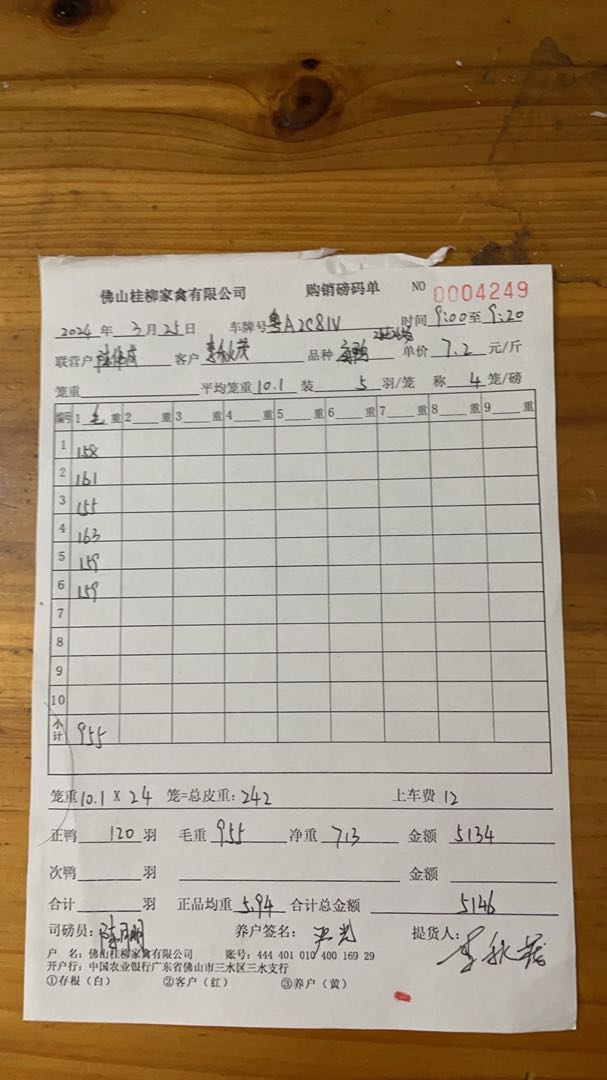 佛山桂柳家禽有限公司 购销磅码单 NO 0004249
2024 年 3 月 25 日 车牌号 粤A2C81V 时间 9:00 至 9:20
联营户 客户 李秋茂 品种 单价 7.2 元/斤
笼重 平均笼重 10.1 装 5 羽/笼 称 4 笼/磅
编号 1 毛 重 2 重 3 重 4 重 5 重 6 重 7 重 8 重 9 重
1 158
2 161
3 155
4 163
5 159
6 159
7
8
9
10
小计 955
笼重 10.1 X 24 笼=总皮重: 242 上车费 12
正鸭 120 羽 毛重 955 净重 713 金额 5134
次鸭 羽 金额
合计 羽 正品均重 5.94 合计总金额 5146
司磅员: 养户签名: 提货人: 李秋茂
户 名: 佛山桂柳家禽有限公司 账号: 444 401 010 400 169 29
开户行: 中国农业银行广东省佛山市三水区三水支行
①存根（白） ②客户（红） ③养户（黄）